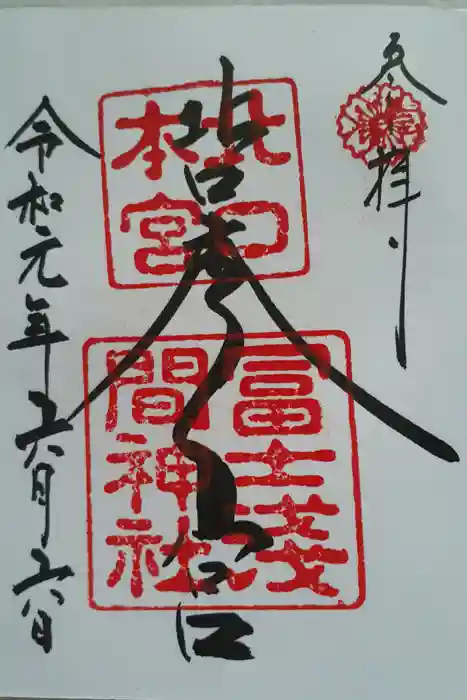 参拝
北口本宮
北口
本宮
冨士浅
間神社
令和元年六月六日